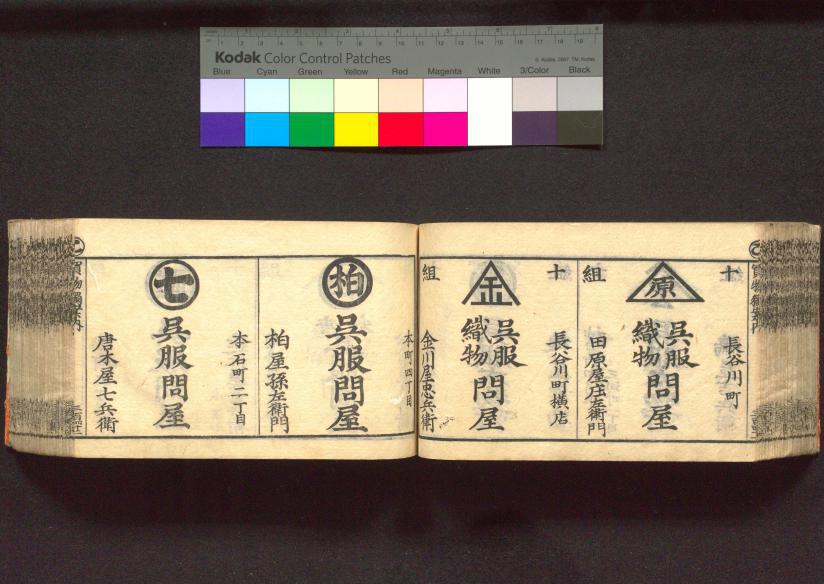 Kodak Color Control Patches
© Kodak, 2007 TM: Kodak
Blue Cyan Green Yellow Red Magenta White 3/Color Black
十 組
原
長谷川町
呉服
織物
問屋
田原屋庄兵衛門
十 組
金
長谷川町横店
呉服
織物
問屋
金川屋忠兵衛
柏
本町四丁目
呉服問屋
柏屋孫左衛門
七
本石町二丁目
呉服問屋
唐木屋七兵衛